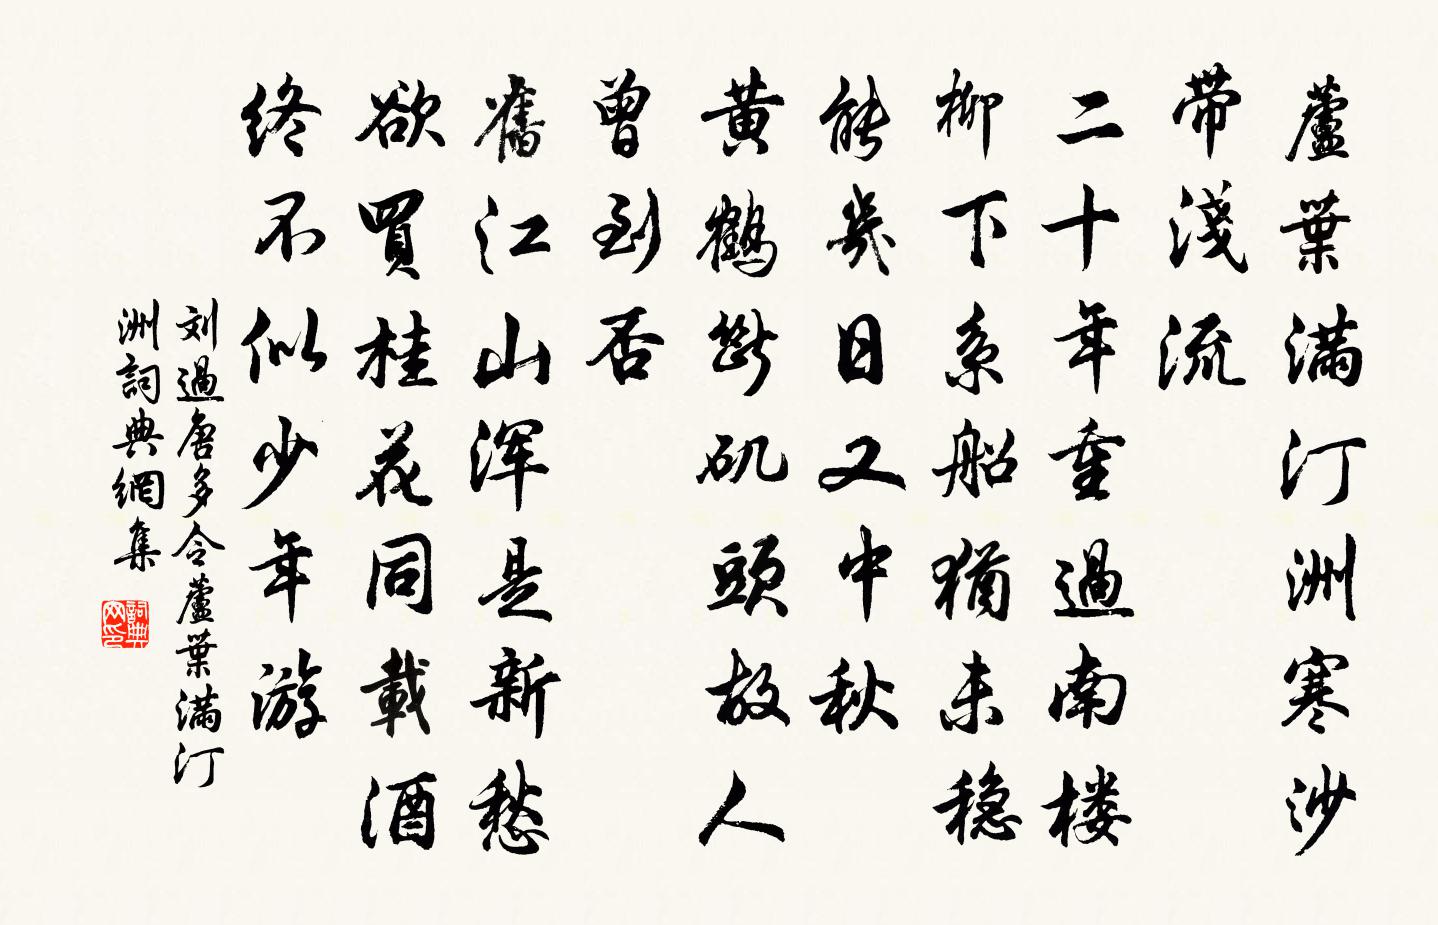 蘆葉滿汀洲寒沙
帶淺流
二十年重過南楼
柳下系船猶未穩
能幾日又中秋
黃鶴斷矶頭故人
曾到否
舊江山浑是新愁
欲買桂花同載酒
終不似少年游
刘過唐多令蘆葉滿汀
洲詞典網集
詞典网印